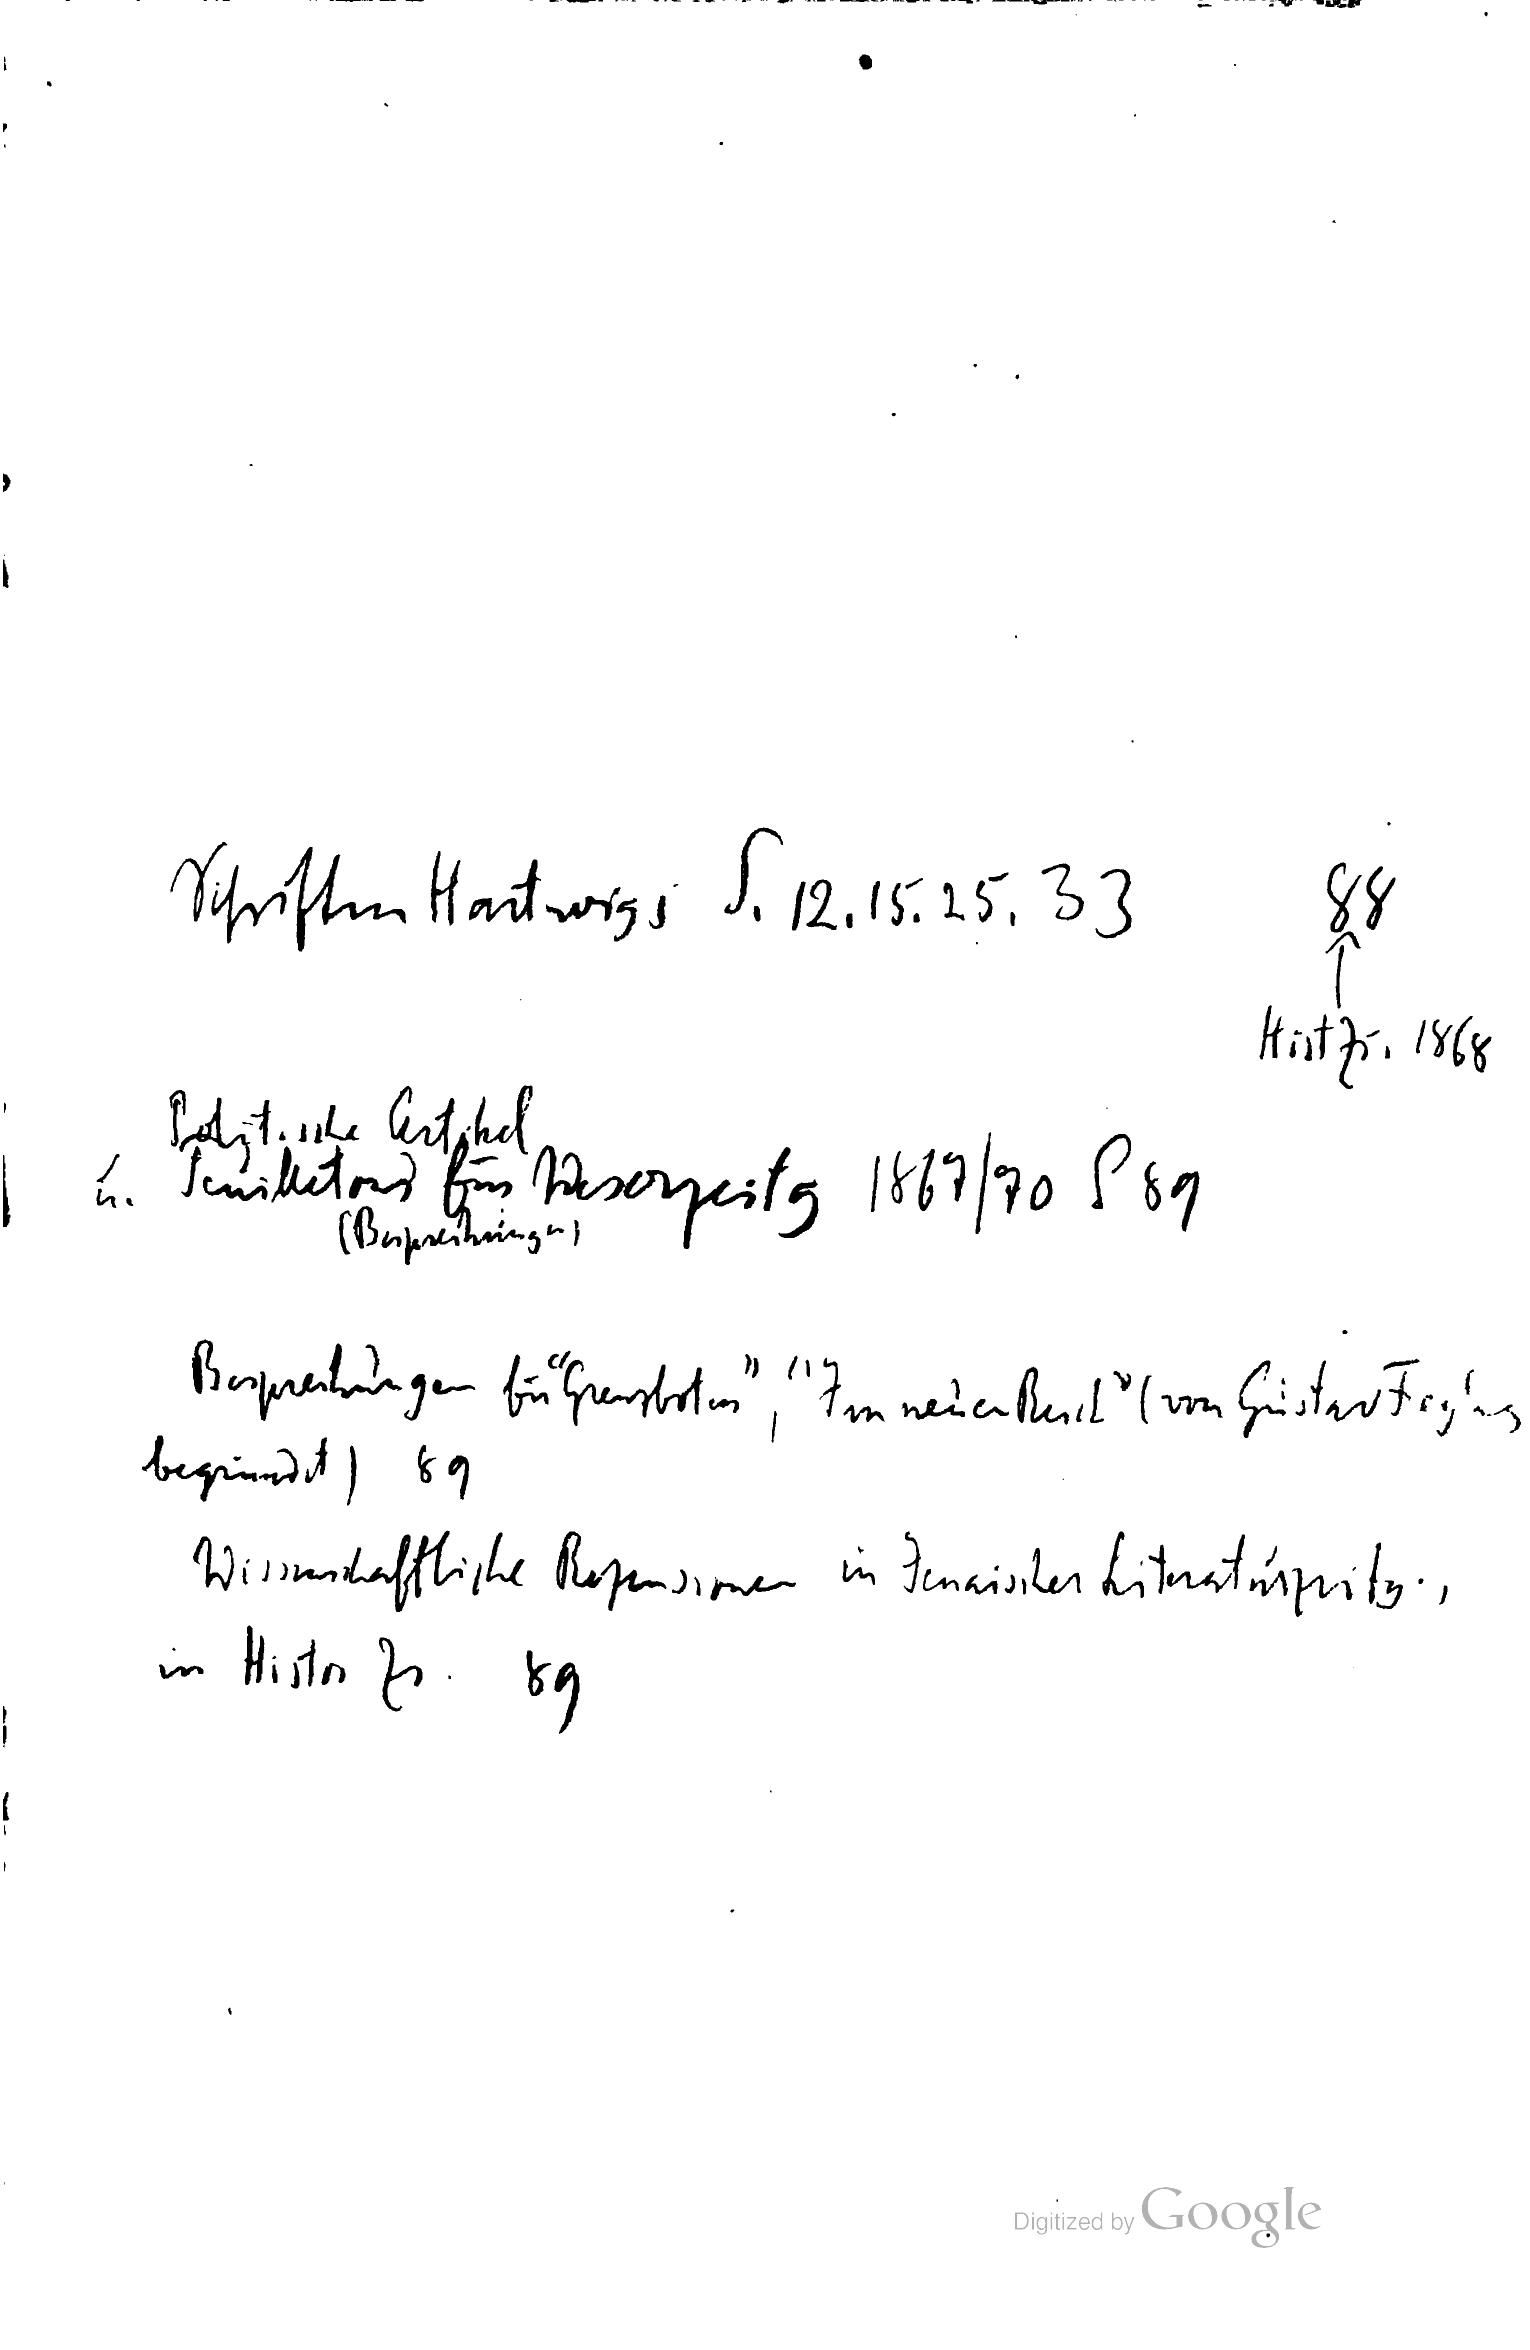 Schriften Hartwigs S. 12.15.25.33 88
↑
Hist Zs. 1868
Politische Artikel
u. Feuilletons für Weserzeitg 1867/70 S 89
(Besprechungen)
Besprechungen für "Grenzboten", "Im neuen Reich" (von Gustav Freytag
begründet) 89
Wissenschaftliche Rezensionen in Jenaischer Literaturzeitg.,
in Histor Zs. 89
Digitized by Google